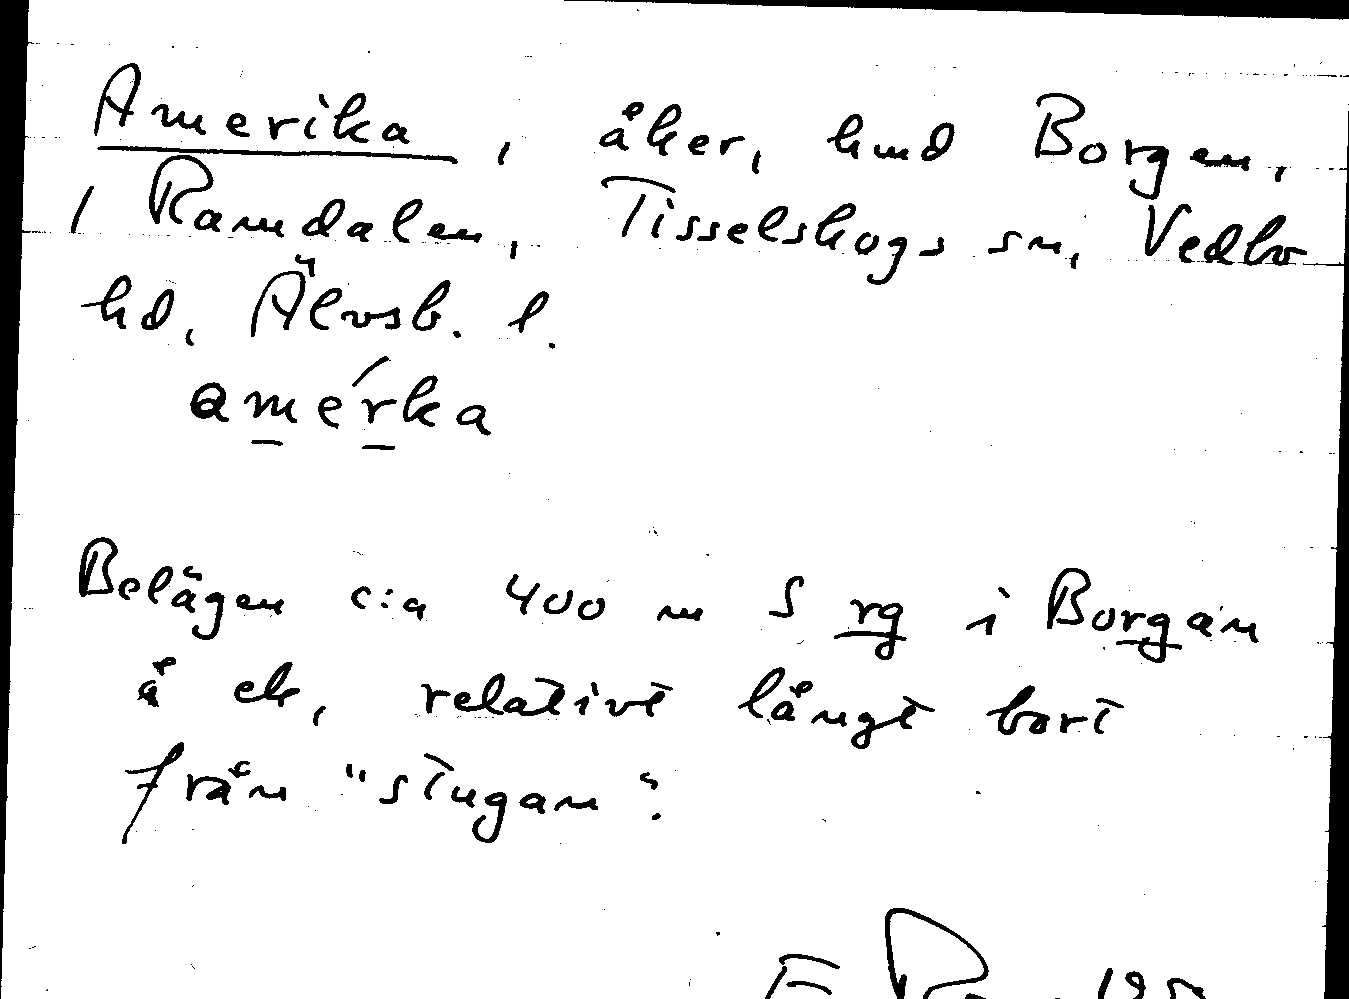 Amerika, åker, hmd Borgen,
1 Ramdalen, Tisselskogs sn, Vedbo
hd, Älvsb. l.
amérka
Belägen c:a 400 m S rg i Borgan
å ek, relativt långt bort
från "stugan".